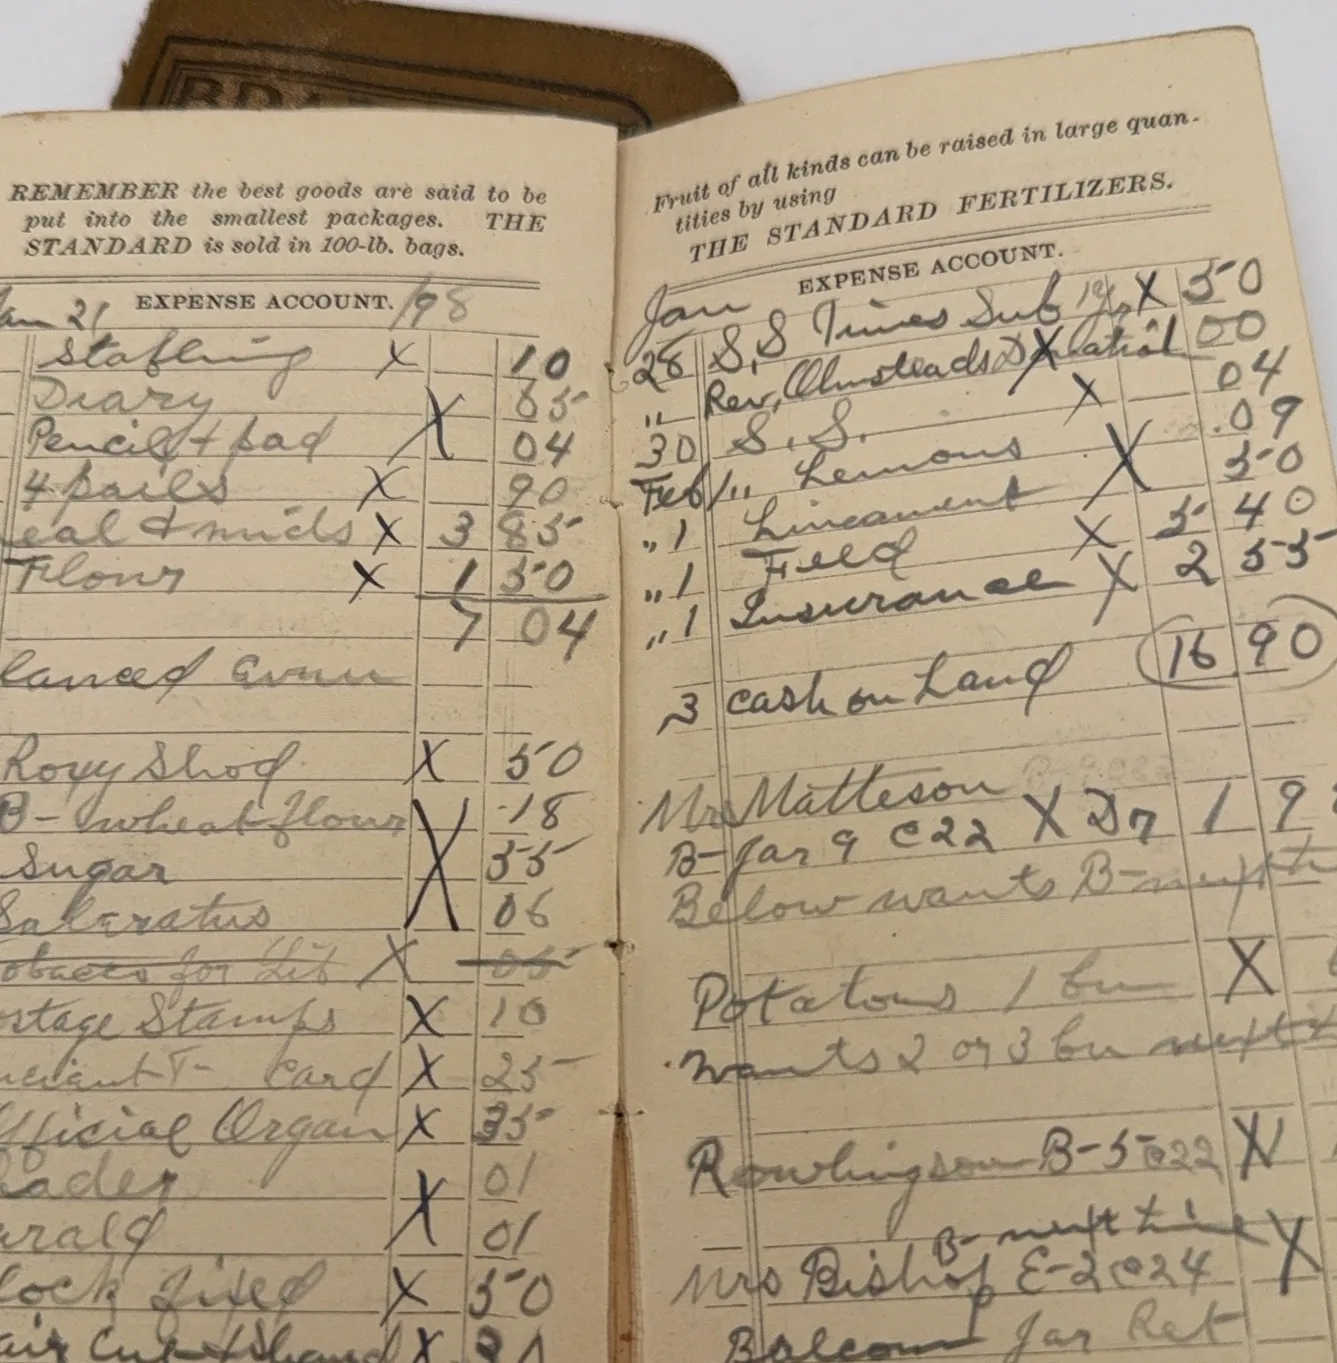 REMEMBER the best goods are said to be
put into the smallest packages. THE
STANDARD is sold in 100-lb. bags.
EXPENSE ACCOUNT.
21 98
Stabling X 10
Diary 65
Pencil + pad X 04
4 pails X 90
eal & mids X 3 85
Flour X 1 50
7 04
lanced
Roxy Shod X 50
B- wheat flour 18
Sugar X 55
Saleratus 06
obacco for Lib X 05
ostage Stamps X 10
T- Card X 25
fficial Organ X 35
eader 01
erald X 01
lock fixed X 50
X
Fruit of all kinds can be raised in large quan-
tities by using
THE STANDARD FERTILIZERS.
EXPENSE ACCOUNT.
Jan
28 S, S Times Sub 1 yr X 50
" Rev, Olmsteads Donation X 00
30 S. S. X 04
Feb 1 " Lemons .09
" 1 Lineament X 50
" 1 Feed X 5 40
" 1 Insurance X 2 55
3 cash on hand 16 90
Mrs Matteson
B- Jar 9 @ 22 X Dr 1 9
Below wants B- next
Potatous 1 bu X
wants 2 or 3 bu next
Rowlingson B-5 @ 22 X
B- next time
Mrs Bishop E-2 @ 24 X
Balcom Jar Ret